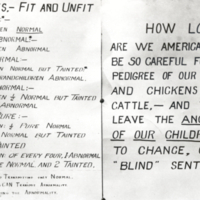 S,- FIT AND UNFIT
EN NORMAL
ABNORMAL"-
N ABNORMAL
RMAL:-
N NORMAL BUT TAINTED
GRANDCHILDREN ABNORMAL
RMAL:-
N ½ NORMAL BUT TAINTED
ABNORMAL
URE:-
½ PURE NORMAL
NORMAL BUT TAINTED
AINTED
N OF EVERY FOUR, 1 ABNORMAL
E NORMAL AND 2 TAINTED.
NORMAL.
ABNORMALITY
TO ABNORMALITY.
HOW LO
ARE WE AMERICA
BE SO CAREFUL F
PEDIGREE OF OUR
AND CHICKENS
CATTLE,- AND
LEAVE THE ANC
OF OUR CHILDR
TO CHANCE, O
"BLIND" SENT